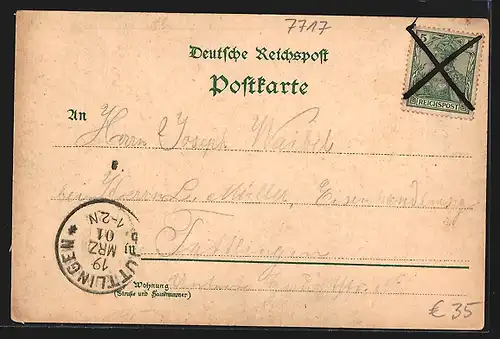 7717
5
REICHSPOST
Deutsche Reichspost
Postkarte
An Herrn Joseph Waibel
bei Herrn L. Müller, Eisenhandlung
in Tuttlingen
TUTTLINGEN
19
MRZ
01
1-2N
Wohnung
(Straße und Hausnummer)
€ 35